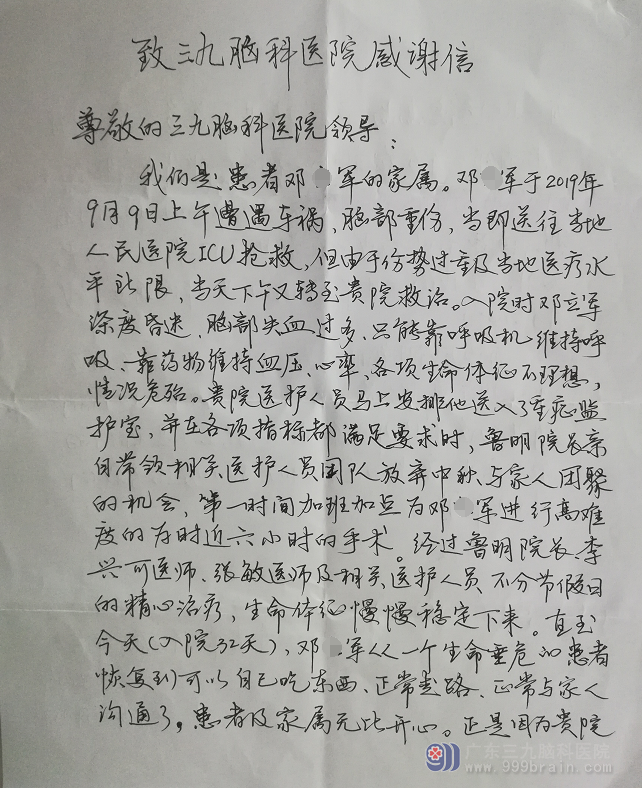 致三九脑科医院感谢信
尊敬的三九脑科医院领导：
我们是患者邓 军的家属。邓 军于2019年
9月9日上午遭遇车祸，脑部重伤，当即送往当地
人民医院ICU抢救，但由于伤势过重及当地医疗水
平所限，当天下午又转至贵院救治。入院时邓立军
深度昏迷、脑部失血过多、只能靠呼吸机维持呼
吸、靠药物维持血压、心率，各项生命体征不理想，
情况危殆。贵院医护人员马上安排他送入了重症监
护室，并在各项指标都满足要求时，鲁明院长亲
自带领相关医护人员团队放弃中秋与家人团聚
的机会，第一时间加班加点为邓 军进行高难
度的为时近六小时的手术。经过鲁明院长、李
兴可医师、张敏医师及相关医护人员不分节假日
的精心治疗，生命体征慢慢稳定下来。直至
今天（入院32天），邓 军从一个生命垂危的患者
恢复到可以自己吃东西、正常走路、正常与家人
沟通了。患者及家属无比开心。正是因为贵院
广东三九脑科医院
www.999brain.com